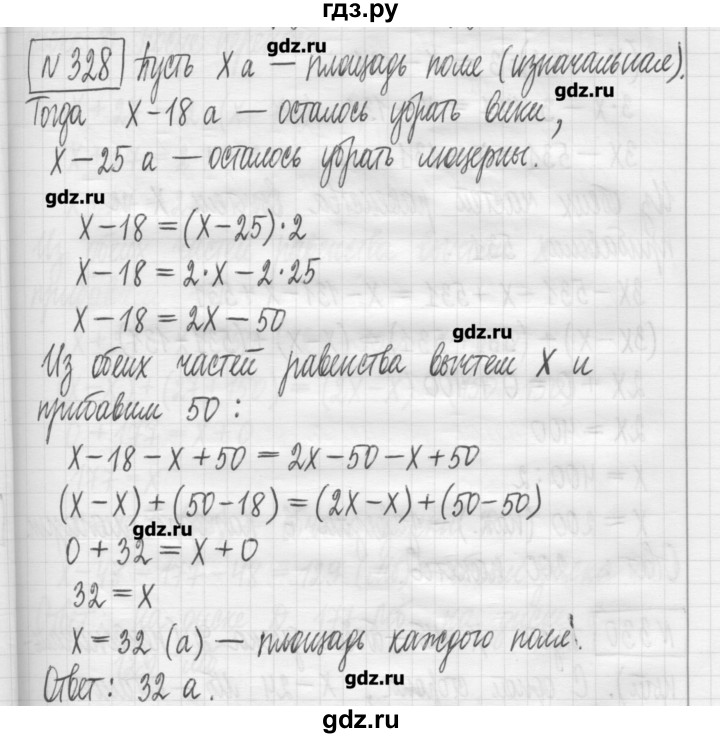 гдз.ру
№ 328 Пусть X а — площадь поле (изначальная).
gdz.ru
gdz.ru
Тогда X-18 а — осталось убрать вики,
X-25 а — осталось убрать люцерны.
gdz.ru
X-18 = (X-25)·2
X-18 = 2·X-2·25
X-18 = 2X-50
gdz.ru
Из обеих частей равенства вычтем X и
прибавим 50:
X-18-X+50 = 2X-50-X+50
(X-X)+(50-18)=(2X-X)+(50-50)
gdz.ru
0+32=X+0
32=X
X=32 (а) — площадь каждого поля.
Ответ: 32 а.
gdz.ru
gdz.ru